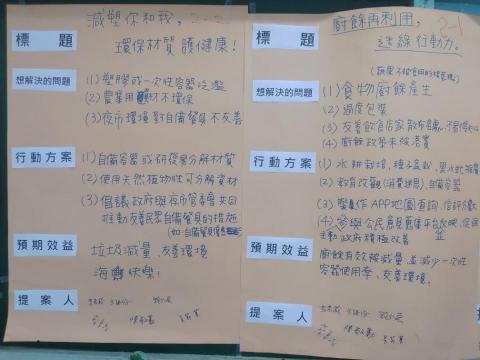 減塑你和我, 2-2
標題
環保材質護健康!
想解決的問題
(1) 塑膠或一次性容器泛濫
(2) 農業用材不環保
(3) 夜市環境對自備餐具不友善
行動方案
(1) 自備容器或研發量分解材質
(2) 使用天然植物性可分解資材
(3) 倡議政府與夜市管委會共同
推動友善民眾自備餐具的措施
(如:自備餐具優惠
預期效益
垃圾減量、友善環境
海洋快樂!
提案人
廚餘再利用, 2-1
標題
連線行動力。
(蔬果不被食用的
想解決的問題
(1) 食物廚餘產生
(2) 過度包裝
(3) 友善飲食店家散布
(4) 廚餘政策未被落實
行動方案
(1) 水耕栽培、種子盆栽、黑水虻推廣
(2) 教育改觀(消費迷思)、自備容器
(3) 製作APP地圖查詢、
(4) 參與公民意見蒐集平台反映、促進
主動政府積極改善
預期效益
廚餘有效被減量, 並減少一次性
容器使用率、友善環境。
提案人